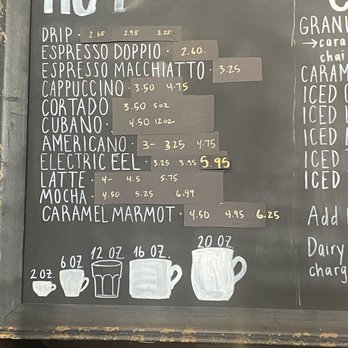 HOT
DRIP · 2.65 2.95 3.25
ESPRESSO DOPPIO · 2.60
ESPRESSO MACCHIATTO · 3.25
CAPPUCCINO · 3.50 4.75
CORTADO · 3.50 5oz
CUBANO · 4.50 12oz
AMERICANO · 3- 3.25 4.75
ELECTRIC EEL · 3.25 3.95 5.95
LATTE · 4- 4.5 5.75
MOCHA · 4.50 5.25 6.49
CARAMEL MARMOT · 4.50 4.95 6.25
2 OZ. 6 OZ 12 OZ 16 OZ. 20 OZ
GRANI
→ cara
chai
CARAM
ICED
ICED
ICED
ICED
ICED
Add
Dairy
charg